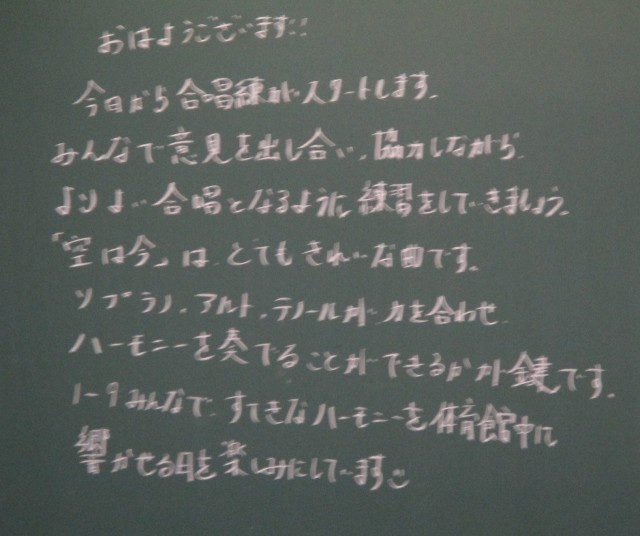 おはようございます!!
今日から合唱練がスタートします。
みんなで意見を出し合い、協力しながら
よりよい合唱となるように練習をしていきましょう。
「空は今」は、とてもきれいな曲です。
ソプラノ、アルト、テノールが力を合わせ
ハーモニーを奏でることができるかが鍵です。
1-9みんなで、すてきなハーモニーを体育館中に
響かせる日を楽しみにしています